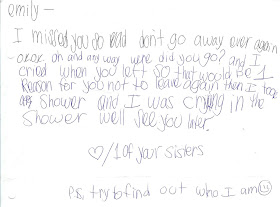 emily —
I missed you so bad don't go away ever again
ok ok oh and any way were did you go? and I
cried when you left so that would be 1
Reason for you not to leave again then I took
a shower and I was crying in the
Shower well see you later.
♡/1 of your sisters
P.S. try to find out who I am ☺